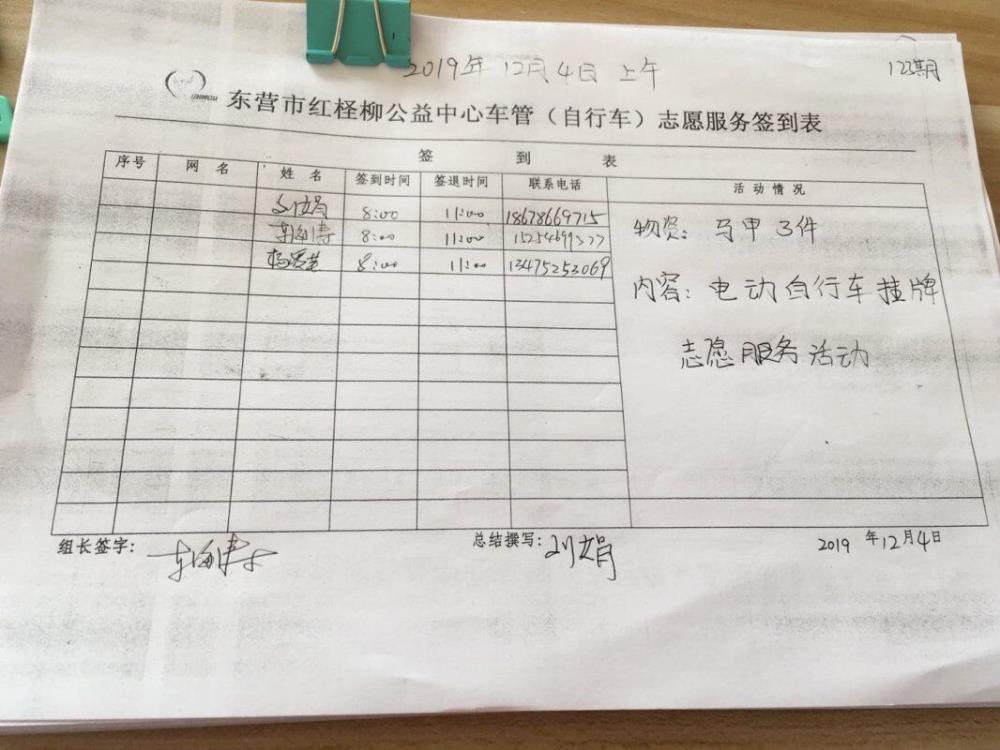 2019年12月4日 上午
123期
东营市红柽柳公益中心车管（自行车）志愿服务签到表
签 到 表
序号 网 名 姓 名 签到时间 签退时间 联系电话 活动情况
刘娟 8:00 11:00 18678669715
8:00 11:00
8:00 11:00 13475253069
物资：马甲3件
内容：电动自行车挂牌
志愿服务活动
组长签字：
总结撰写：刘娟
2019 年12月4日